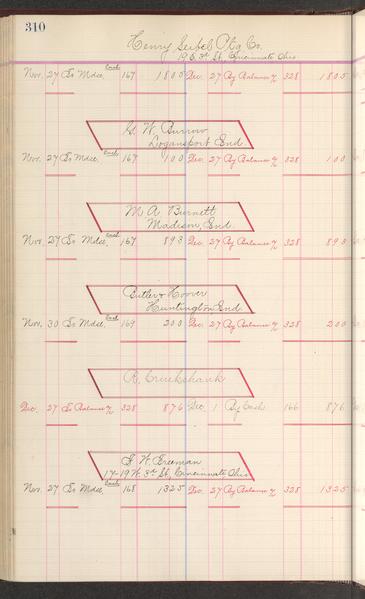 310
Henry Seibel Ptg Co.
19 E. 3rd St, Cincinnati Ohio.
Nov. 27 To Mdse. Cash 167 1805 Dec. 27 By Balance 328 1805
G. W. Burrow
Logansport Ind
Nov. 27 To Mdse Cash 167 100 Dec. 27 By Balance 328 100
M A Burnett
Madison, Ind.
Nov. 27 To Mdse, Cash 167 893 Dec. 27 By Balance 328 893
Butler & Hoover
Huntington Ind
Nov. 30 To Mdse. Cash 169 200 Dec. 27 By Balance 328 200
R. Cruikshank
Dec. 27 To Balance 328 876 Dec. 1 By Cash 166 876
G. W. Freeman
17-19 W. 3rd St, Cincinnati Ohio
Nov. 27 To Mdse Cash 168 1325 Dec. 27 By Balance 328 1325